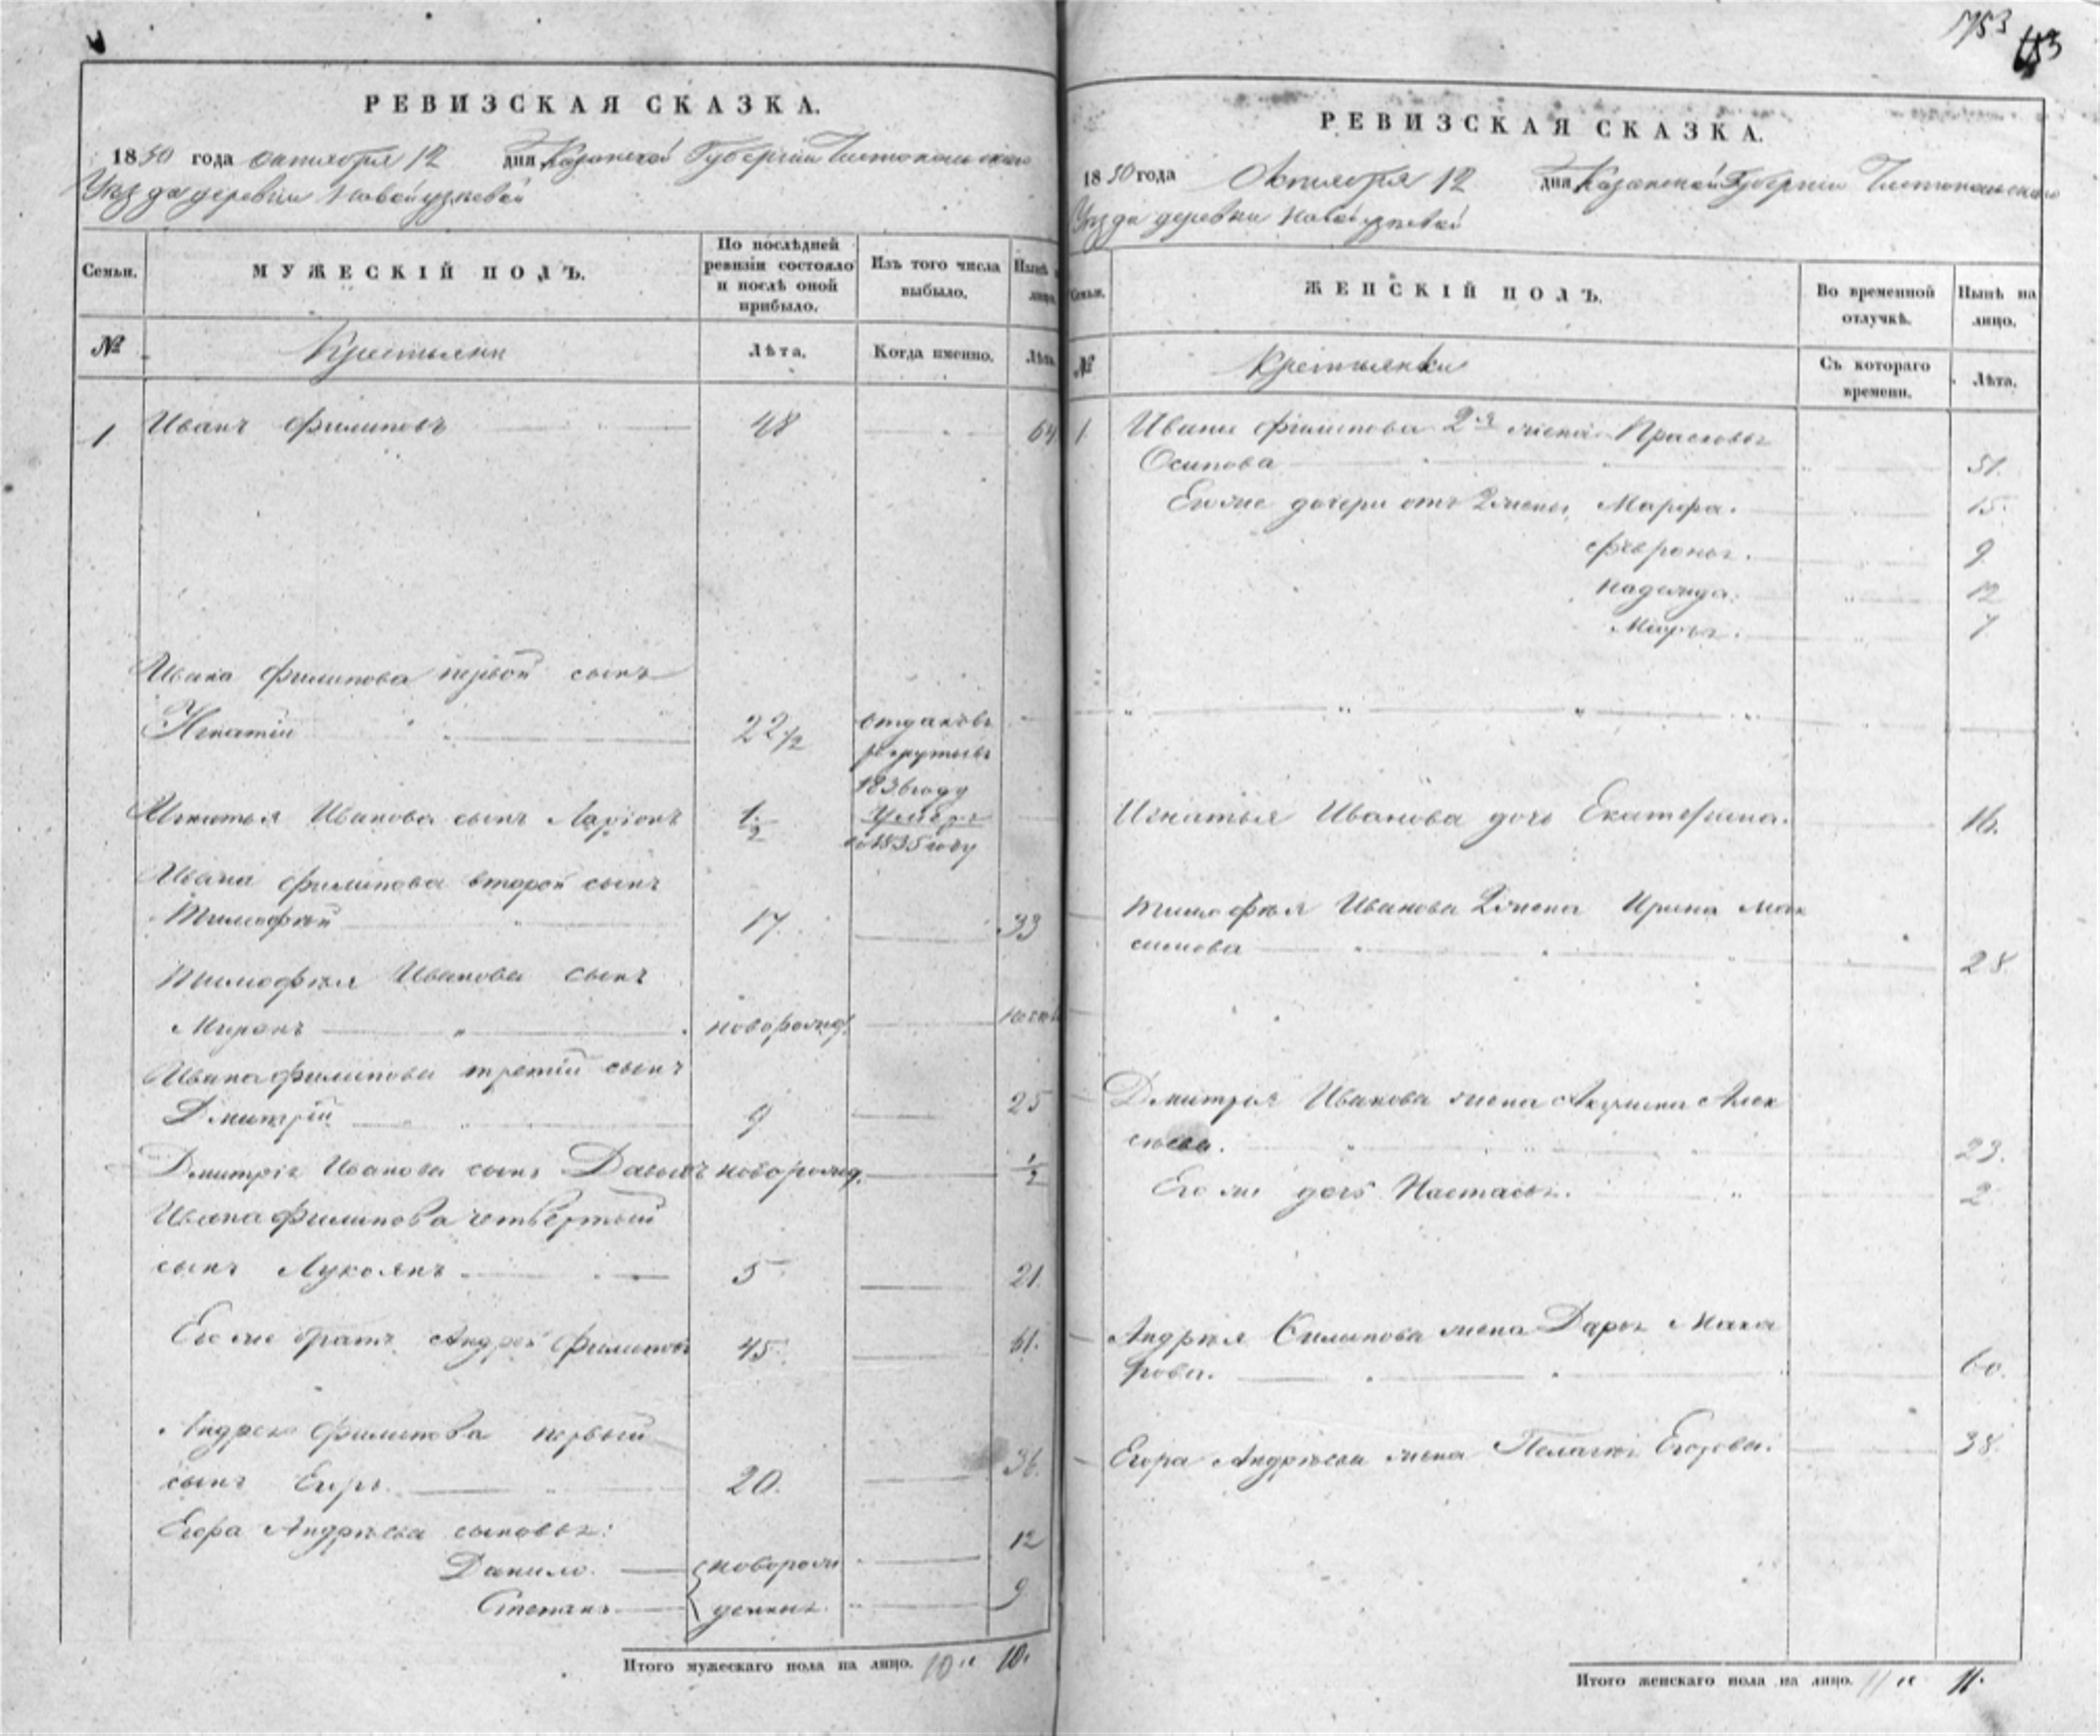 5753
153
РЕВИЗСКАЯ СКАЗКА.
1850 года октября 12 дня Казанской Губернiи Чистопольскаго
Уѣзда деревни Новой
Семьи.
МУЖЕСКIЙ ПОЛЪ.
По послѣдней ревизiи состояло и послѣ оной прибыло.
Изъ того числа выбыло.
Нынѣ на лицо.
№
Крестьяне
Лѣта.
Когда именно.
Лѣта.
1 Иванъ Филиповъ 48 64
Ивана Филипова первой сынъ
Игнатiй 22 1/2 отданъ въ
рекруты въ
1836 году
Игнатья Иванова сынъ Ларiонъ 1/2 Умеръ
въ 1835 году
Ивана Филипова второй сынъ
Тимофѣй 17. 33
Тимофѣя Иванова сынъ
Миронъ новорожд.
Ивана Филипова третiй сынъ
Дмитрiй 9 25
Дмитрiя Иванова сынъ Давыдъ новорожд. 1/2
Ивана Филипова четвертый
сынъ Лукоянъ 5 21.
Его же братъ Андрей Филиповъ 45. 61.
Андрея Филипова первый
сынъ Егоръ. 20. 36.
Егора Андрѣева сыновья:
Данило. новорож 12
Степанъ денныя. 9
Итого мужескаго пола на лицо. 10 10.
РЕВИЗСКАЯ СКАЗКА.
1850 года Октября 12 дня Казанской Губернiи Чистопольскаго
Уѣзда деревни Новой
Семьи.
ЖЕНСКIЙ ПОЛЪ.
Во временной отлучкѣ.
Нынѣ на лицо.
№
Крестьянки
Съ котораго времени.
Лѣта.
1. Ивана Филипова 2я жена Прасковья
Осипова 51.
Его же дочери отъ 2 жены, Марфа. 15.
Февронья. 9
Надежда. 12
Марья. 7
Игнатья Иванова дочь Екатерина. 16.
Тимофѣя Иванова 2 жена Ирина Мак
симова 28
Дмитрiя Иванова жена Акулина Алек
сѣева. 23.
Его же дочь Настасья. 2
Андрѣя Филипова жена Дарья Мака
рова. 60.
Егора Андрѣева жена Пелагея Егорова. 38.
Итого женскаго пола на лицо. 11 11.